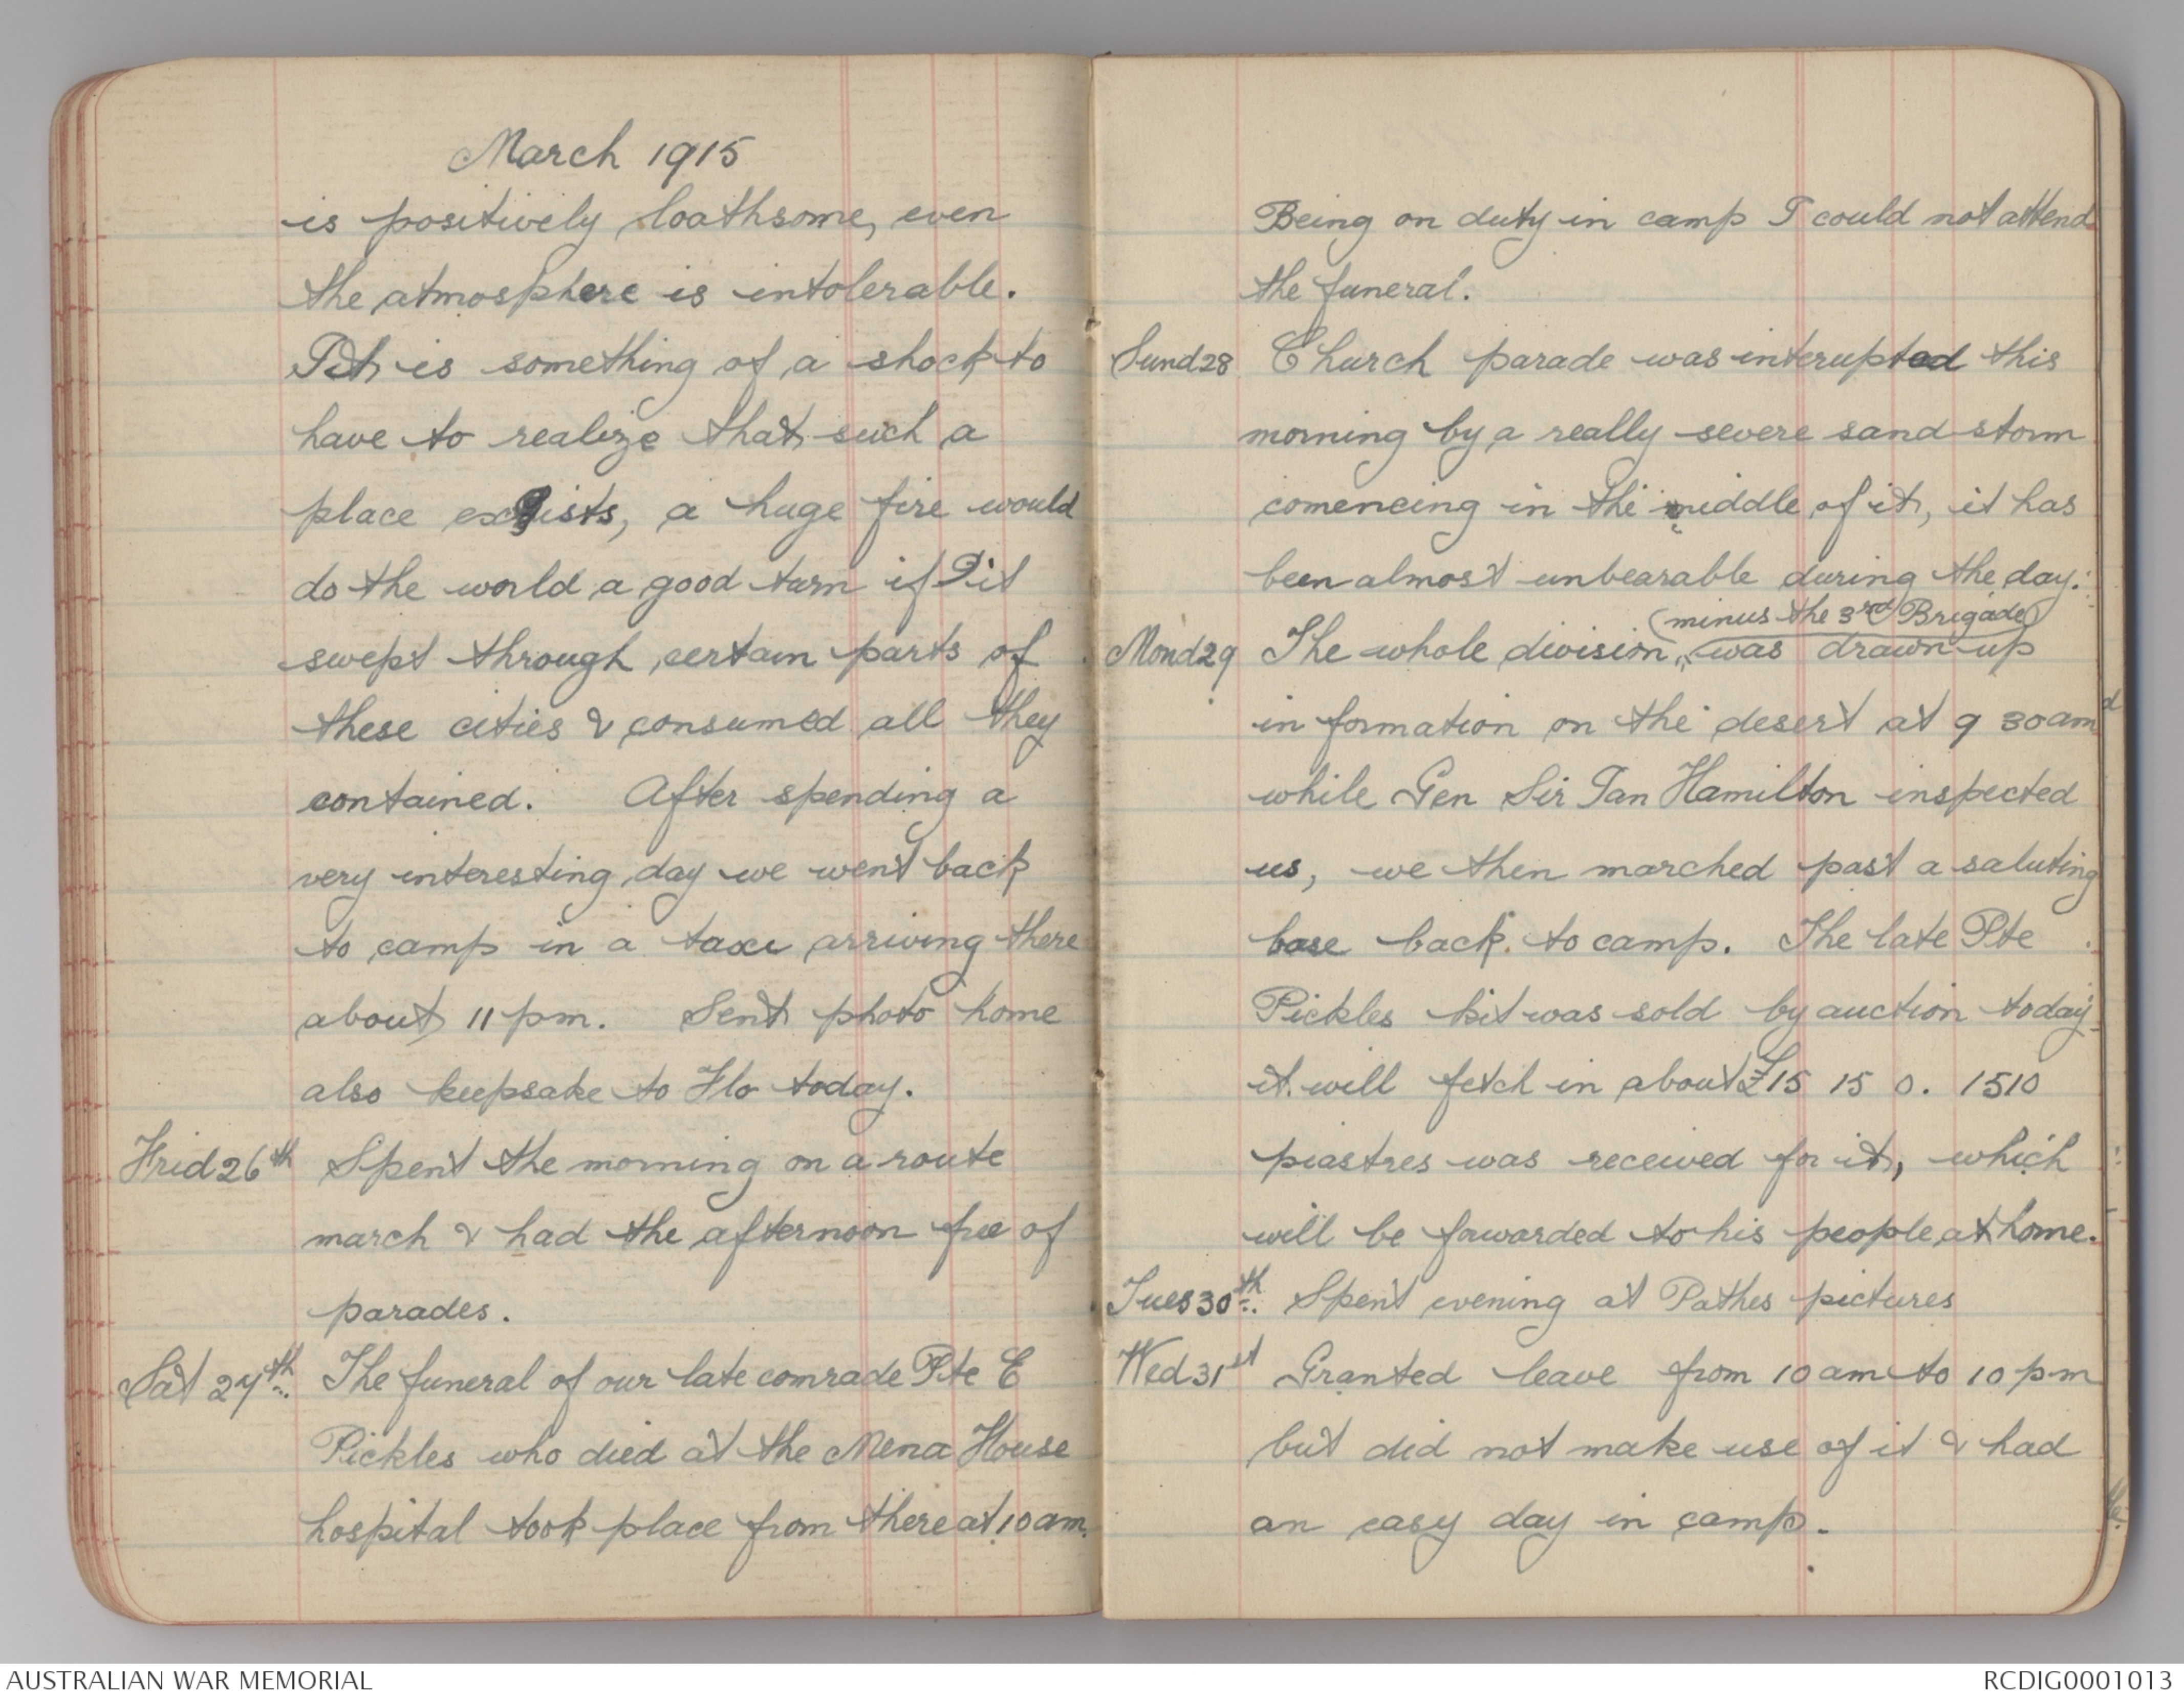 March 1915
is positively loathsome, even
the atmosphere is intolerable.
It is something of a shock to
have to realize that such a
place exists, a huge fire would
do the world a good turn if it
swept through certain parts of
these cities & consumed all they
contained. After spending a
very interesting day we went back
to camp in a taxi arriving there
about 11 pm. Sent photo home
also keepsake to Flo today.
Frid 26th Spent the morning on a route
march & had the afternoon free of
parades.
Sat 27th The funeral of our late comrade Pte E
Pickles who died at the Mena House
hospital took place from there at 10 am.
Being on duty in camp I could not attend
the funeral.
Sund 28 Church parade was interupted this
morning by a really severe sand storm
comencing in the middle of it, it has
been almost unbearable during the day.
(minus the 3rd Brigade)
Mond 29 The whole division, was drawn up
in formation on the desert at 9 30 am
while Gen Sir Ian Hamilton inspected
us, we then marched past a saluting
base back to camp. The late Pte
Pickles kit was sold by auction today
it will fetch in about £15 15 0. 1510
piastres was received for it, which
will be forwarded to his people at home.
Tues 30th. Spent evening at Pathes pictures
Wed 31st Granted leave from 10 am to 10 pm
but did not make use of it & had
an easy day in camp.
AUSTRALIAN WAR MEMORIAL
RCDIG0001013